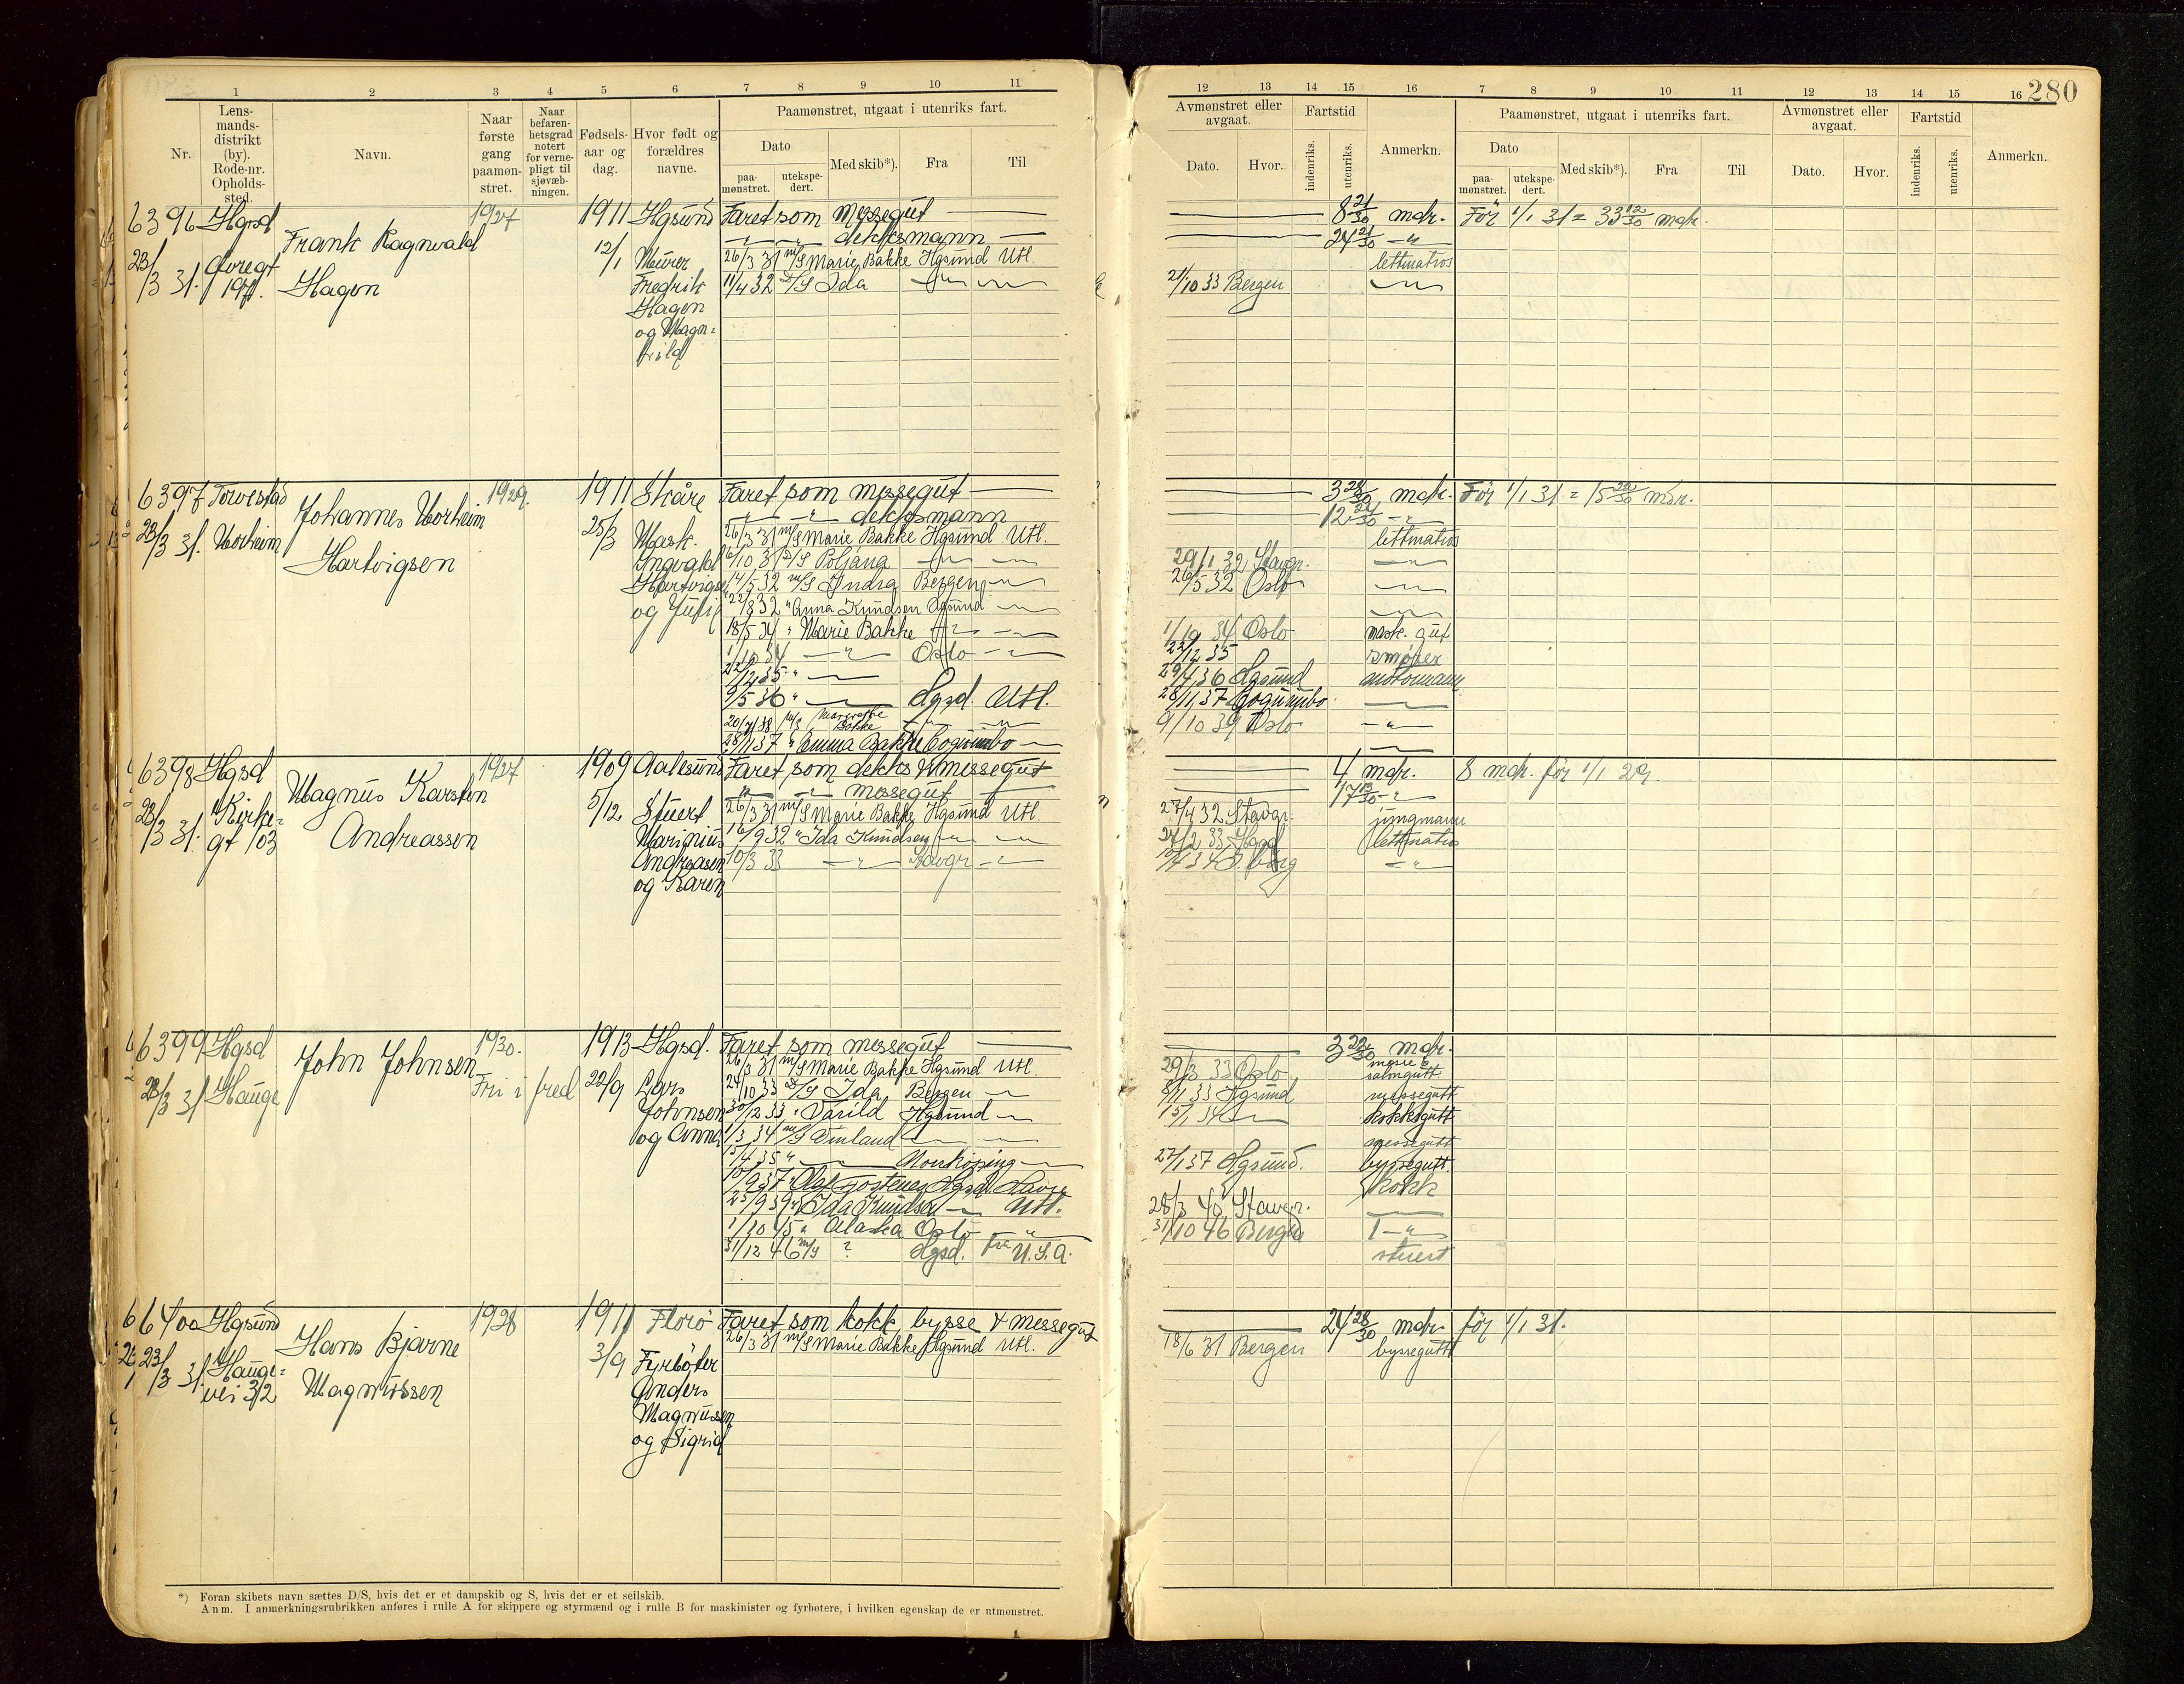 1 2 3 4 5 6 7 8 9 10 11
Nr.
Lens-
mands-
distrikt
(by).
Rode-nr.
Opholds-
sted.
Navn.
Naar
første
gang
paamøn-
stret.
Naar
befaren-
hetsgrad
notert
for verne-
pligt til
sjøvæb-
ningen.
Fødsels-
aar og
dag.
Hvor født og
forældres
navne.
Paamønstret, utgaat i utenriks fart.
Dato
paa-
mønstret.
utekspe-
dert.
Med skib*).
Fra
Til
12 13 14 15 16 7 8 9 10 11 12 13 14 15 16 280
Avmønstret eller
avgaat.
Dato.
Hvor.
Fartstid
indenriks.
utenriks.
Anmerkn.
Paamønstret, utgaat i utenriks fart.
Dato
paa-
mønstret.
utekspe-
dert.
Med skib*).
Fra
Til
Avmønstret eller
avgaat.
Dato.
Hvor.
Fartstid
indenriks.
utenriks.
Anmerkn.
6396 Hgsd
23/3 31.
Frank Ragnvald
Hagen
1927
1911
12/1
Hgsund
Fredrik
Hagen
og Magn-
hild
Faret som messegut
" " dekksmann
26/3 31 m/S Marie Bakke Hgsund Utl.
11/4 32 D/S Ida
8 21/30 mdr. Før 1/1 31 = 33 12/30 mdr.
24 21/30 "
lettmatros
21/10 33 Bergen
6397 Torvestad
23/3 31. Norheim
Johannes Norheim
Hartvigsen
1929.
1911
25/3
Skåre
Mask.
Ingvald
Hartvigsen
og Julie
Faret som messegut
" " dekksmann
26/3 31 m/S Marie Bakke Hgsund Utl.
6/10 31 D/S Poljana
14/5 32 m/S Indra Bergen
22/8 32 " Anna Knudsen Hgsund
18/5 34 " Marie Bakke
1/10 34 " Oslo
22/12 35 "
9/5 36 " Hgsd Utl.
20/4 38 m/S Margrethe Bakke
28/11 37 " Emma Bakke Coquimbo
3 28/30 mdr. Før 1/1 31 = 15 22/30 mdr.
12 24/30 "
lettmatros
29/1 32 Stavgr.
26/5 32 Oslo
1/10 34 Oslo mask. gut
22/12 35 smører
29/4 36 Hgsund motormann
28/11 37 Coquimbo
9/10 39 Oslo "
6398 Hgsd
23/3 31. Kirke-
gt 103
Magnus Karsten
Andreassen
1927
1909
5/12
Aalesund
Stuert
Marinius
Andreasen
og Karen
Faret som dekks & messegut
" " messegut
26/3 31 m/S Marie Bakke Hgsund Utl.
16/9 32 " Ida Knudsen
10/3 33 " Stavgr.
4 mdr. 8 mdr. før 1/1 29.
17 13/30 "
27/4 32 Stavgr. jungmann
24/2 33 Hgsd lettmatros
10/4 34 "
6399 Hgsd
23/3 31 Hauge
John Johnsen
1930.
Fri i fred
1913
22/9
Hgsd.
Lars
Johnsen
og Anna
Faret som messegut
26/3 31 m/S Marie Bakke Hgsund Utl.
24/10 33 D/S Ida Bergen
30/12 33 " Varild Hgsund
1/3 34 m/S Vinland
1/4 35 " Norrköping
10/9 37 " Olaf Hgsd
25/9 39 m/S Ida Knudsen Utl.
1/10 45 " Alaska Oslo "
31/12 46 m/S ? Hgsd. fra U.S.A.
3 22/30 mdr.
29/3 33 Oslo messe & salongutt.
8/11 33 Hgsund messegutt
15/1 34 kokksgutt
messegutt
27/1 37 Hgsund. byssegutt
kokk
28/3 40 Stavgr.
31/10 46 Bergen "
stuert
6400 Hgsund
23/3 31. Hauge-
vei 32
Hans Bjarne
Magnussen
1928
1911
3/9
Florø
Fyrbøter
Anders
Magnussen
og Sigrid
Faret som kokk, bysse & messegut
26/3 31 m/S Marie Bakke Hgsund Utl.
24 28/30 mdr. før 1/1 31.
18/6 31 Bergen byssegutt
*) Foran skibets navn sættes D/S, hvis det er et dampskib og S, hvis det er et seilskib.
Anm. I anmerkningsrubrikken anføres i rulle A for skippere og styrmænd og i rulle B for maskinister og fyrbøtere, i hvilken egenskap de er utmønstret.